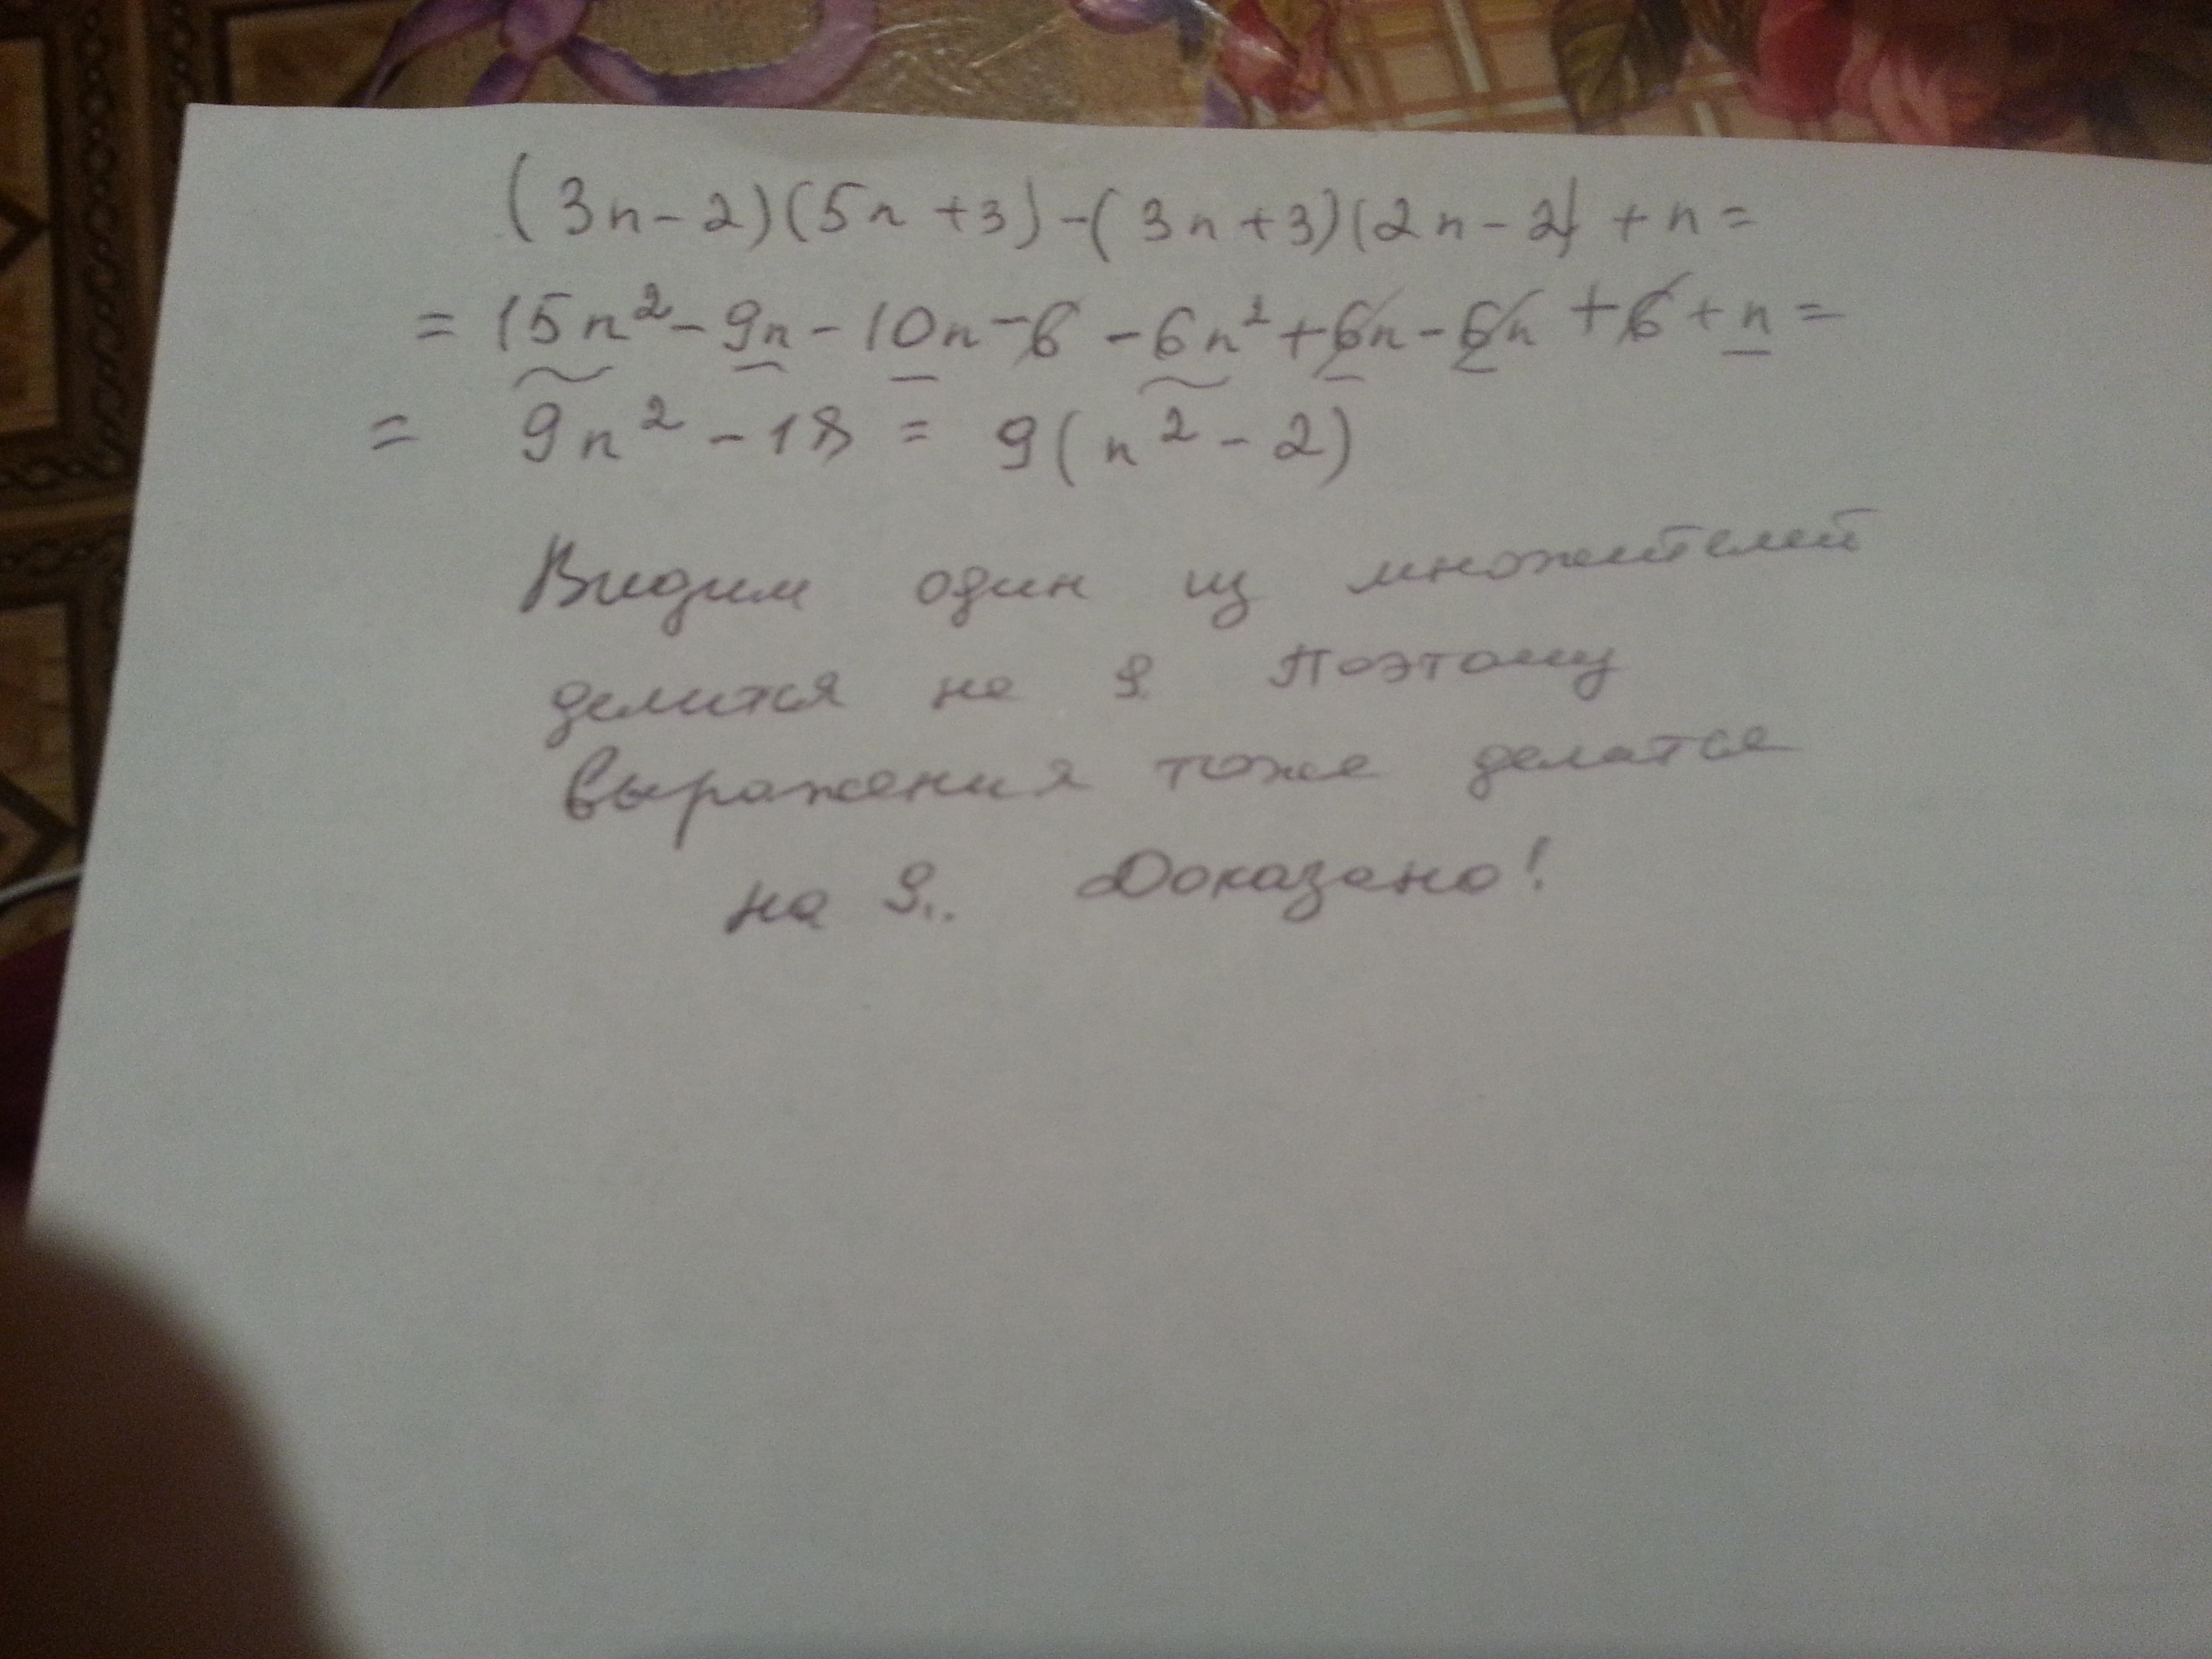 (3n-2)(5n+3)-(3n+3)(2n-2)+n=
=15n²-9n-10n-6-6n²+6n-6n+6+n=
= 9n²-18 = 9(n²-2)
Видим один из множителей
делится на 9. Поэтому
выражения тоже делатся
на 9.. Доказано!